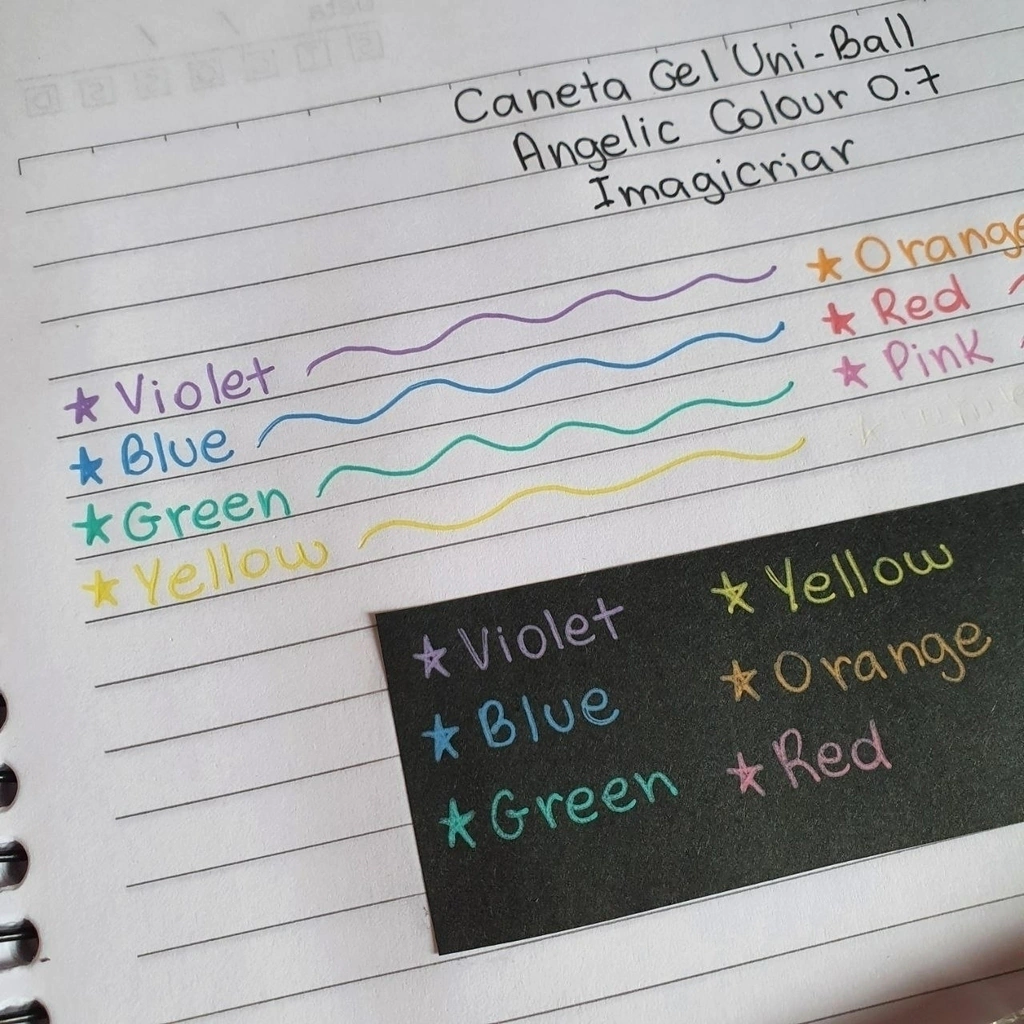 Caneta Gel Uni-Ball
Angelic Colour 0.7
Imagicriar
★ Violet
★ Blue
★ Green
★ Yellow
★ Orange
★ Red
★ Pink
★ Violet
★ Blue
★ Green
★ Yellow
★ Orange
★ Red